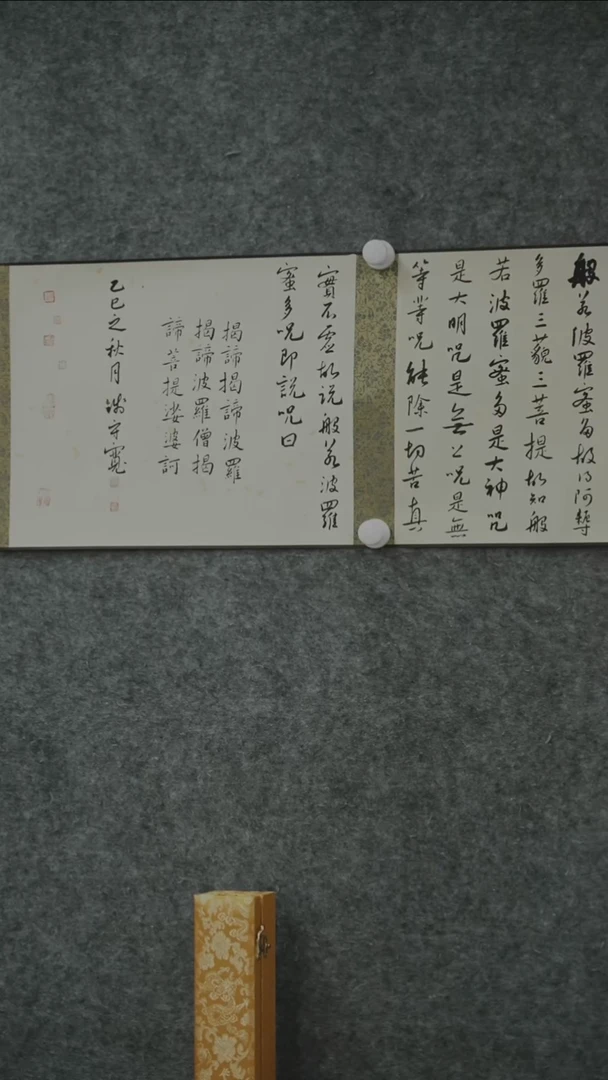 般若波羅蜜多故得阿耨
多羅三藐三菩提故知般
若波羅蜜多是大神咒
是大明咒是無上咒是無
等等咒能除一切苦真
實不虛故说般若波羅
蜜多咒即説咒曰
揭諦揭諦波羅
揭諦波羅僧揭
諦菩提娑婆訶
乙巳之秋月